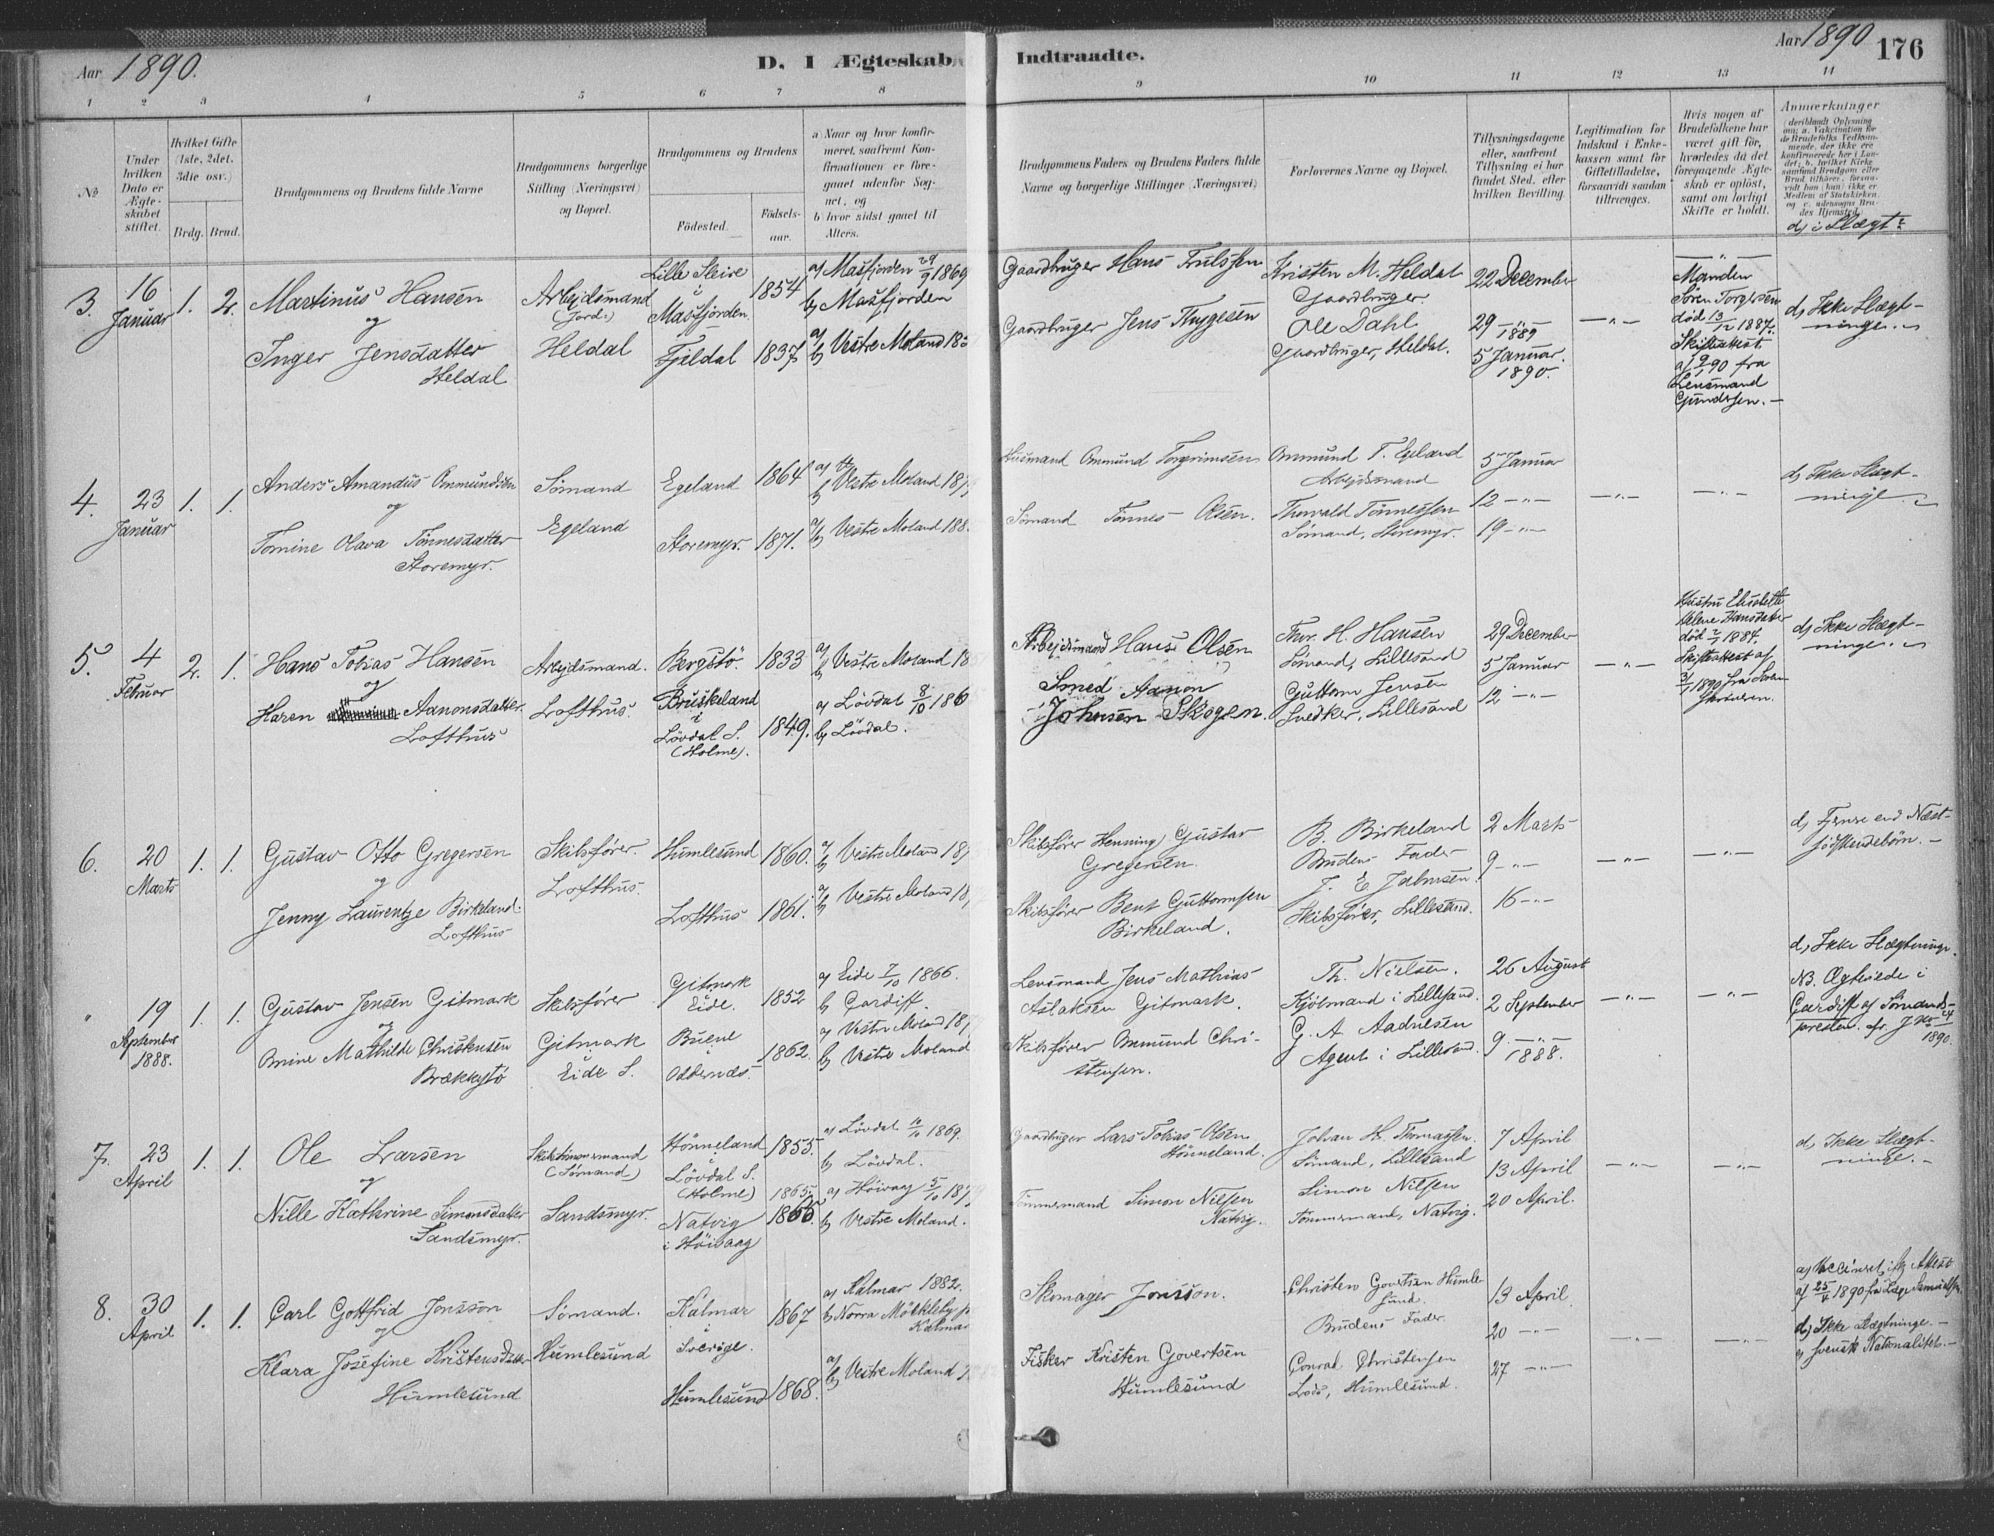 Aar 1890. D. I Ægteskab Indtraadte. Aar 1890 176
1 2 3 4 5 6 7 8 9 10 11 12 13 14
No
Under hvilken Dato er Ægteskabet stiftet.
Hvilket Gifte (1ste, 2det, 3die osv.)
Brdg. Brud.
Brudgommens og Brudens fulde Navne
Brudgommens borgerlige Stilling (Næringsvei) og Bopæl.
Brudgommens og Brudens
Födested. Födselsaar.
a) Naar og hvor konfirmeret, saafremt Konfirmationen er foregaaet udenfor Sognet, og
b) hvor sidst gaaet til Alters.
Brudgommens Faders og Brudens Faders fulde Navne og borgerlige Stillinger (Næringsvei)
Forlovernes Navne og Bopæl.
Tillysningsdagene eller, saafremt Tillysning ei har fundet Sted, efter hvilken Bevilling.
Legitimation for Indskud i Enkekassen samt for Giftetilladelse, forsaavidt saadan tiltrænges.
Hvis nogen af Brudefolkene har været gift för, hvorledes da det foregaaende Ægteskab er oplöst, samt om lovligt Skifte er holdt.
Anmærkninger
(deriblandt Oplysning om: a. Vakcination for de Brudefolks Vedkommende, der ikke ere konfirmerede her i Landet; b. hvilket Kirkesamfund Brudgom eller Brud tilhører, forsaavidt han (hun) ikke er Medlem af Statskirken, og c. udensogns Brudes Hjemsted.
d) i Slægt?
3. 16 Januar 1. 2.
Martinus Hansen
og
Inger Jensdatter
Heldal
Arbejdsmand
(Jord.)
Heldal
Lille Steine
i
Masfjorden. 1854
Fjeldal 1837
a) Masfjorden 29/9 1869
b) Masfjorden
a) b) Vestre Moland
Gaardbruger Hans Trulssen
Gaardbruger Jens Thygesen
Kristen M. Heldal
Gaardbruger.
Ole Dahl
Gaardbruger, Heldal.
22 December
29 -"- 1889
5 Januar. 1890.
-"-
Manden
Sören Torgersen
död 13/12 1887.
Skifteattest
af 9/1 90 fra
Lensmand
Gundersen.-
d) Ikke Slægtninge.
4. 23 Januar 1. 1.
Anders Amandus Ommundsen
og
Tomine Olava Tönnesdatter
Storemyr.
Sömand
Egeland
Egeland 1864
Storemyr. 1871.
a) b) Vestre Moland
a) b) Vestre Moland
Husmand Ommund Torgrimsen
Sömand Tönnes Olsen.
Ommund T. Egeland
Arbejdsmand
Thorvald Tönnessen
Sömand, Storemyr.
5 Januar
12 -"-
19 -"-
-"- -"-
d) Ikke Slægtninge
5. 4 Februar 2. 1.
Hans Tobias Hansen
og
Karen Aanonsdatter
Lofthus
Arbejdsmand.
Lofthus.
Bergstö. 1833
Bruskeland
i
Lövdal S.
(Holme). 1849.
a) b) Vestre Moland
a) Lövdal 8/10
b) Lövdal.
Arbejdsmand Hans Olsen
Smed Aanon
Johnsen Skogen.
Thor. H. Hansen
Sömand, Lillesand
Guttorm Jensen
Snedker, Lillesand
29 December
5 Januar
12 -"-
-"-
Hustru Elisabeth
Helene Hansdatter
död 1884.
Skifteattest af
3/1 1890 fra
d) Ikke Slægtninge.
6. 20 Marts 1. 1.
Gustav Otto Gregersen
og
Jenny Laurentze Birkeland
Lofthus
Skibsförer.
Lofthus.
Humlesund 1860.
Lofthus 1861.
a) b) Vestre Moland
a) b) Vestre Moland
Skibsförer Henning Gustav
Gregersen.
Skibsförer Bent Guttormsen
Birkeland.
B. Birkeland
Brudens Fader
J. E. Jahnsen.
Skibsförer, Lillesand.
2 Marts
9 -"-
16 -"-
-"- -"-
d) Fjerne end Næstsödskendebörn.-
" 19 September 1888. 1. 1.
Gustav Jensen Gitmark
og
Omine Mathilde Christensen
Brækkestö
Skibsförer
Gitmark
Eide S.
Gitmark
Eide. 1852
Buene
i
Oddernes. 1862.
a) Eide 7/10 1866.
b) Cardiff.
a) Vestre Moland
b) Vestre Moland
Lensmand Jens Mathias
Aslaksen Gitmark.
Skibsförer Ommund Christensen.
Th. Nielsen.
Kjöbmand i Lillesand.
G. A. Aadnesen
Agent i Lillesand.
26 August
2 September
9 -"- 1888.
-"- -"-
d) Ikke Slægtninge.
NB. Ægteviede i
Cardiff af Sömandspresten. cfr. J. No 24 1890.
7. 23 April 1. 1.
Ole Larsen
og
Nille Kathrine Simonsdatter
Sandsmyr.
Skibstömmermand
(Sömand)
Sandsmyr.
Hönneland
i
Lövdal S.
(Holme) 1855.
Natvig
i Höivaag 1865. 1866
a) Lövdal 1869.
b) Lövdal.
a) Höivaag 5/10
b) Vestre Moland.
Gaardbruger Lars Tobias Olsen
Hönneland.
Tömmermand Simon Nilsen
Natvig.
Johan H. Thomassen.
Sömand, Lillesand
Simon Nilsen
Tömmermand, Natvig.
7 April
13 April
20 April.
-"- -"-
d) Ikke Slægtninge.-
8. 30 April 1. 1.
Carl Gottfrid Jonsson
og
Klara Josefine Kristensdatter
Humlesund
Sömand.
Humlesund
Kalmar
i
Sverige. 1867
Humlesund 1868.
a) Kalmar 1882.
b) Norra Möckleby
Kalmar
a) b) Vestre Moland
Skomager Jonsson.
Fisker Kristen Govertsen
Humlesund
Christen Govertsen Humlesund
Brudens Fader.
Conrad Christensen
Lods, Humlesund.
13 April
20 -"-
27 -"-
-"- -"-
a) Vaccineret iflg Attest
af 25/4 1890 fra Læge
d) Ikke Slægtninge.-
Svensk Nationalitet.-